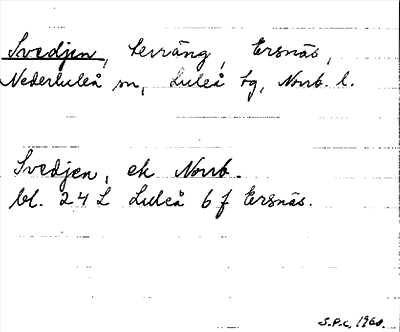 Svedjen, terräng, Ersnäs,
Nederluleå sn, Luleå tg, Norrb. l.
Svedjen, ek Norrb.
bl. 24 L Luleå 6 f Ersnäs.
S.P.C, 1960.